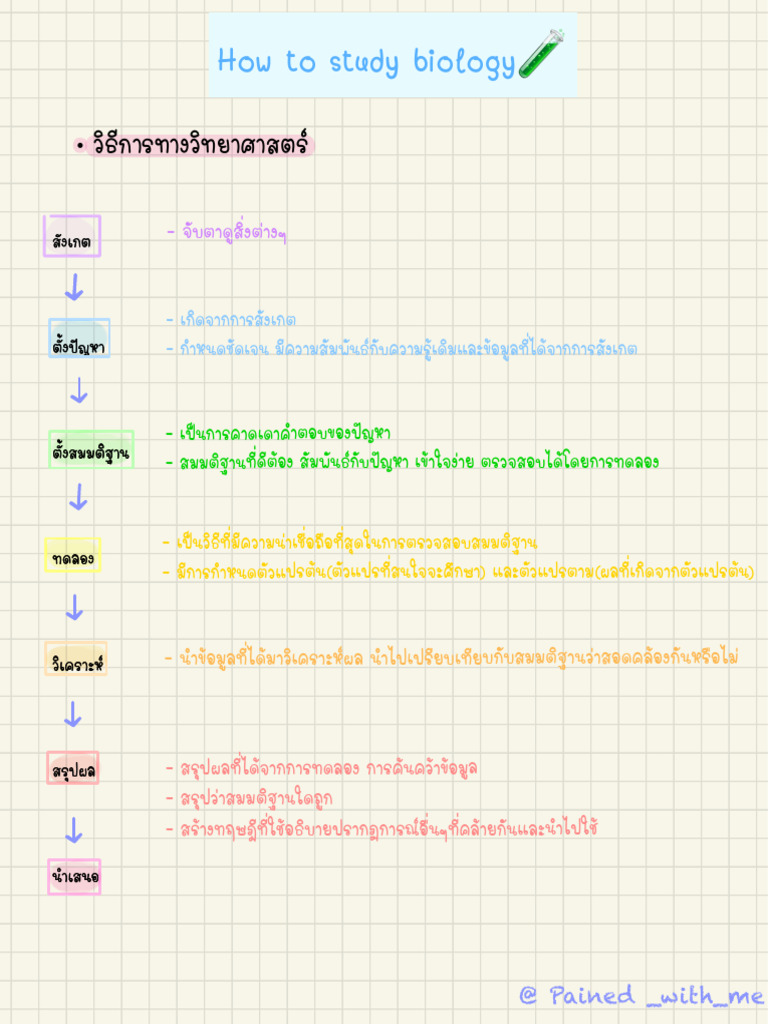 How to study biology
• วิธีการทางวิทยาศาสตร์
สังเกต
- จับตาดูสิ่งต่างๆ
ตั้งปัญหา
- เกิดจากการสังเกต
- กำหนดชัดเจน มีความสัมพันธ์กับความรู้เดิมและข้อมูลที่ได้จากการสังเกต
ตั้งสมมติฐาน
- เป็นการคาดเดาคำตอบของปัญหา
- สมมติฐานที่ดีต้อง สัมพันธ์กับปัญหา เข้าใจง่าย ตรวจสอบได้โดยการทดลอง
ทดลอง
- เป็นวิธีที่มีความน่าเชื่อถือที่สุดในการตรวจสอบสมมติฐาน
- มีการกำหนดตัวแปรต้น(ตัวแปรที่สนใจจะศึกษา) และตัวแปรตาม(ผลที่เกิดจากตัวแปรต้น)
วิเคราะห์
- นำข้อมูลที่ได้มาวิเคราะห์ผล นำไปเปรียบเทียบกับสมมติฐานว่าสอดคล้องกันหรือไม่
สรุปผล
- สรุปผลที่ได้จากการทดลอง การค้นคว้าข้อมูล
- สรุปว่าสมมติฐานใดถูก
- สร้างทฤษฎีที่ใช้อธิบายปรากฏการณ์อื่นๆที่คล้ายกันและนำไปใช้
นำเสนอ
@ Pained _with_me